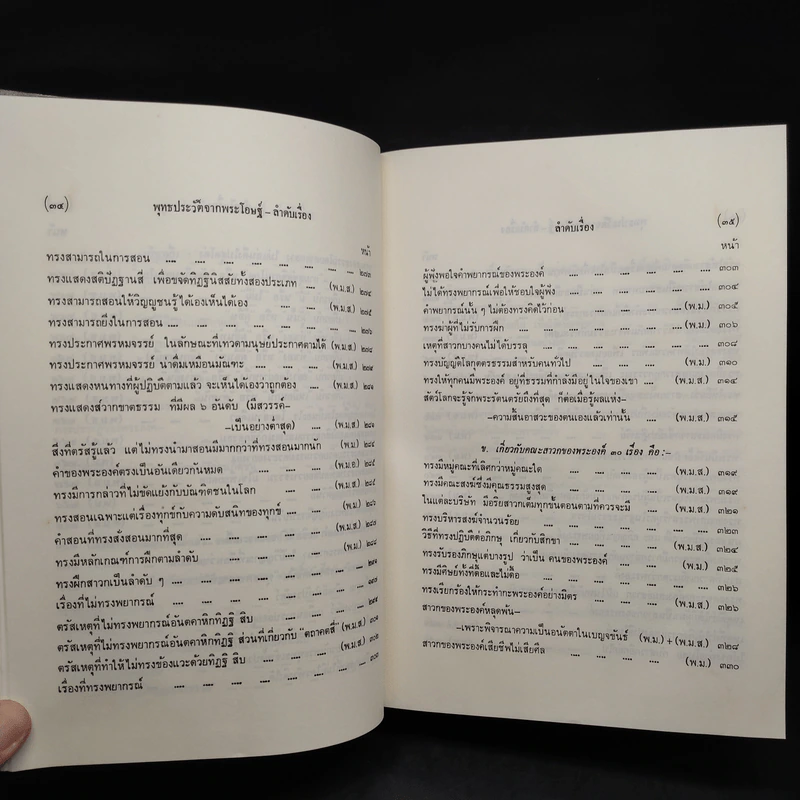 (๓๔) พุทธประวัติจากพระโอษฐ์ – ลำดับเรื่อง
หน้า
ทรงสามารถในการสอน .... .... .... .... .... .... ....
ทรงแสดงสติปัฏฐานสี่ เพื่อขจัดทิฏฐินิสสัยทั้งสองประเภท .... (พ.ม.ส.)
ทรงสามารถสอนให้วิญญูชนรู้ได้เองเห็นได้เอง .... .... ....
ทรงสามารถยิ่งในการสอน .... .... .... .... .... ....
ทรงประกาศพรหมจรรย์ ในลักษณะที่เทวดามนุษย์ประกาศตามได้ (พ.ม.ส.)
ทรงประกาศพรหมจรรย์ น่าดื่มเหมือนมัณฑะ .... .... ....
ทรงแสดงหนทางที่ผู้ปฏิบัติตามแล้ว จะเห็นได้เองว่าถูกต้อง .... (พ.ม.ส.)
ทรงแสดงส์วากขาตธรรม ที่มีผล ๖ อันดับ (มีสวรรค์–
–เป็นอย่างต่ำสุด) .... (พ.ม.ส.)
สิ่งที่ตรัสรู้แล้ว แต่ไม่ทรงนำมาสอนมีมากกว่าที่ทรงสอนมากนัก
คำของพระองค์ตรงเป็นอันเดียวกันหมด .... ....
ทรงมีการกล่าวที่ไม่ขัดแย้งกับบัณฑิตชนในโลก .... .... (พ.ม.ส.)
ทรงสอนเฉพาะแต่เรื่องทุกข์กับความดับสนิทของทุกข์ .... ....
คำสอนที่ทรงสั่งสอนมากที่สุด .... .... .... .... (พ.ม.ส.)
ทรงมีหลักเกณฑ์การฝึกตามลำดับ .... .... .... ....
ทรงฝึกสาวกเป็นลำดับ ๆ .... .... .... .... .... ....
เรื่องที่ไม่ทรงพยากรณ์ .... .... .... .... .... ....
ตรัสเหตุที่ไม่ทรงพยากรณ์อันตคาหิกทิฏฐิ สิบ .... .... ....
ตรัสเหตุที่ไม่ทรงพยากรณ์อันตคาหิกทิฏฐิ ส่วนที่เกี่ยวกับ "ตถาคตสี่" (พ.ม.ส.)
ตรัสเหตุที่ทำให้ไม่ทรงข้องแวะด้วยทิฏฐิ สิบ .... .... .... (พ.ม.)
เรื่องที่ทรงพยากรณ์ .... .... .... .... .... ....
ลำดับเรื่อง (๓๕)
หน้า
ผู้ฟังพอใจคำพยากรณ์ของพระองค์ .... .... .... .... .... ๓๐๓
ไม่ได้ทรงพยากรณ์เพื่อให้ชอบใจผู้ฟัง .... .... .... .... .... ๓๐๔
คำพยากรณ์นั้น ๆ ไม่ต้องทรงคิดไว้ก่อน .... .... .... (พ.ม.) ๓๐๕
ทรงฆ่าผู้ที่ไม่รับการฝึก .... .... .... .... .... (พ.ม.) ๓๐๖
เหตุที่สาวกบางคนไม่ได้บรรลุ .... .... .... .... .... ๓๐๘
ทรงบัญญัติโลกุตตรธรรมสำหรับคนทั่วไป .... .... .... .... ๓๑๐
ทรงให้ทุกคนมีพระองค์ อยู่ที่ธรรมที่กำลังมีอยู่ในใจของเขา .... (พ.ม.ส.) ๓๑๔
สัตว์โลกจะรู้จักพระรัตนตรัยถึงที่สุด ก็ต่อเมื่อรู้ผลแห่ง–
–ความสิ้นอาสวะของตนเองแล้วเท่านั้น .... (พ.ม.ส.) ๓๑๕
ข. เกี่ยวกับคณะสาวกของพระองค์ ๓๐ เรื่อง คือ:–
ทรงมีหมู่คณะที่เลิศกว่าหมู่คณะใด .... .... .... .... (พ.ม.) ๓๑๙
ทรงมีคณะสงฆ์ซึ่งมีคุณธรรมสูงสุด .... .... .... (พ.ม.ส.) ๓๑๙
ในแต่ละบริษัท มีอริยสาวกเต็มทุกขั้นตอนตามที่ควรจะมี .... (พ.ม.) ๓๒๑
ทรงบริหารสงฆ์จำนวนร้อย .... .... .... .... .... .... ๓๒๓
วิธีที่ทรงปฏิบัติต่อภิกษุ เกี่ยวกับสิกขา .... .... .... (พ.ม.ส.) ๓๒๔
ทรงรับรองภิกษุแต่บางรูป ว่าเป็น คนของพระองค์ .... .... (พ.ม.) ๓๒๕
ทรงมีศิษย์ทั้งที่ดื้อและไม่ดื้อ .... .... .... .... .... ๓๒๖
ทรงเรียกร้องให้กระทำกะพระองค์อย่างมิตร .... .... .... (พ.ม.ส.) ๓๒๖
สาวกของพระองค์หลุดพ้น–
–เพราะพิจารณาความเป็นอนัตตาในเบญจขันธ์ (พ.ม.) + (พ.ม.ส.) ๓๒๘
สาวกของพระองค์เสียชีพไม่เสียศีล .... .... .... .... (พ.ม.) ๓๓๐